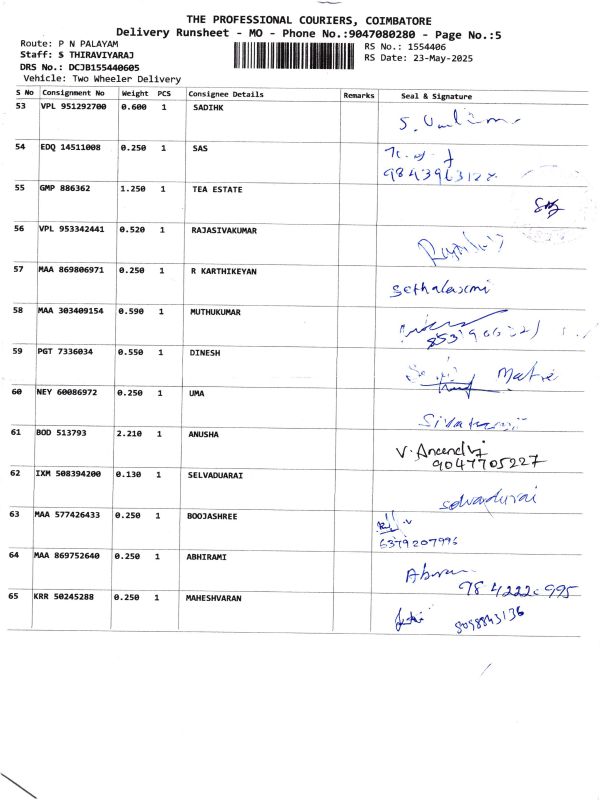 THE PROFESSIONAL COURIERS, COIMBATORE
Delivery Runsheet - MO - Phone No.:9047080280 - Page No.:5
Route: P N PALAYAM
RS No.: 1554406
Staff: S THIRAVIYARAJ
RS Date: 23-May-2025
DRS No.: DCJB155440605
Vehicle: Two Wheeler Delivery
S No Consignment No Weight PCS Consignee Details Remarks Seal & Signature
53 VPL 951292700 0.600 1 SADIHK
54 EDQ 14511008 0.250 1 SAS
55 GMP 886362 1.250 1 TEA ESTATE
56 VPL 953342441 0.520 1 RAJASIVAKUMAR
57 MAA 869806971 0.250 1 R KARTHIKEYAN
sethalaxmi
58 MAA 303409154 0.590 1 MUTHUKUMAR
59 PGT 7336034 0.550 1 DINESH
60 NEY 60086972 0.250 1 UMA
61 BOD 513793 2.210 1 ANUSHA
V. Anandhi
9047705227
62 IXM 508394200 0.130 1 SELVADUARAI
selvadurai
63 MAA 577426433 0.250 1 BOOJASHREE
6379207996
64 MAA 869752640 0.250 1 ABHIRAMI
65 KRR 50245288 0.250 1 MAHESHVARAN